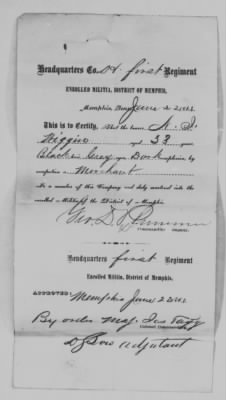 Headquarters Co. first Regiment
ENROLLED MILITIA, DISTRICT OF MEMPHIS,
Memphis, June 2 186
This is to Certify, That the bearer
Higgins aged 33 years
Black hair Grey eyes Dark complexion, by
occupation a Merchant
Is a member of this Company and duly enrolled into the
enrolled Militia of the District of Memphis
Geo. D.
COMMANDING COMPANY.
Headquarters first Regiment
Enrolled Militia, District of Memphis.
APPROVED: Memphis June 2 186
By order Maj.
Colonel Commanding
Adjutant